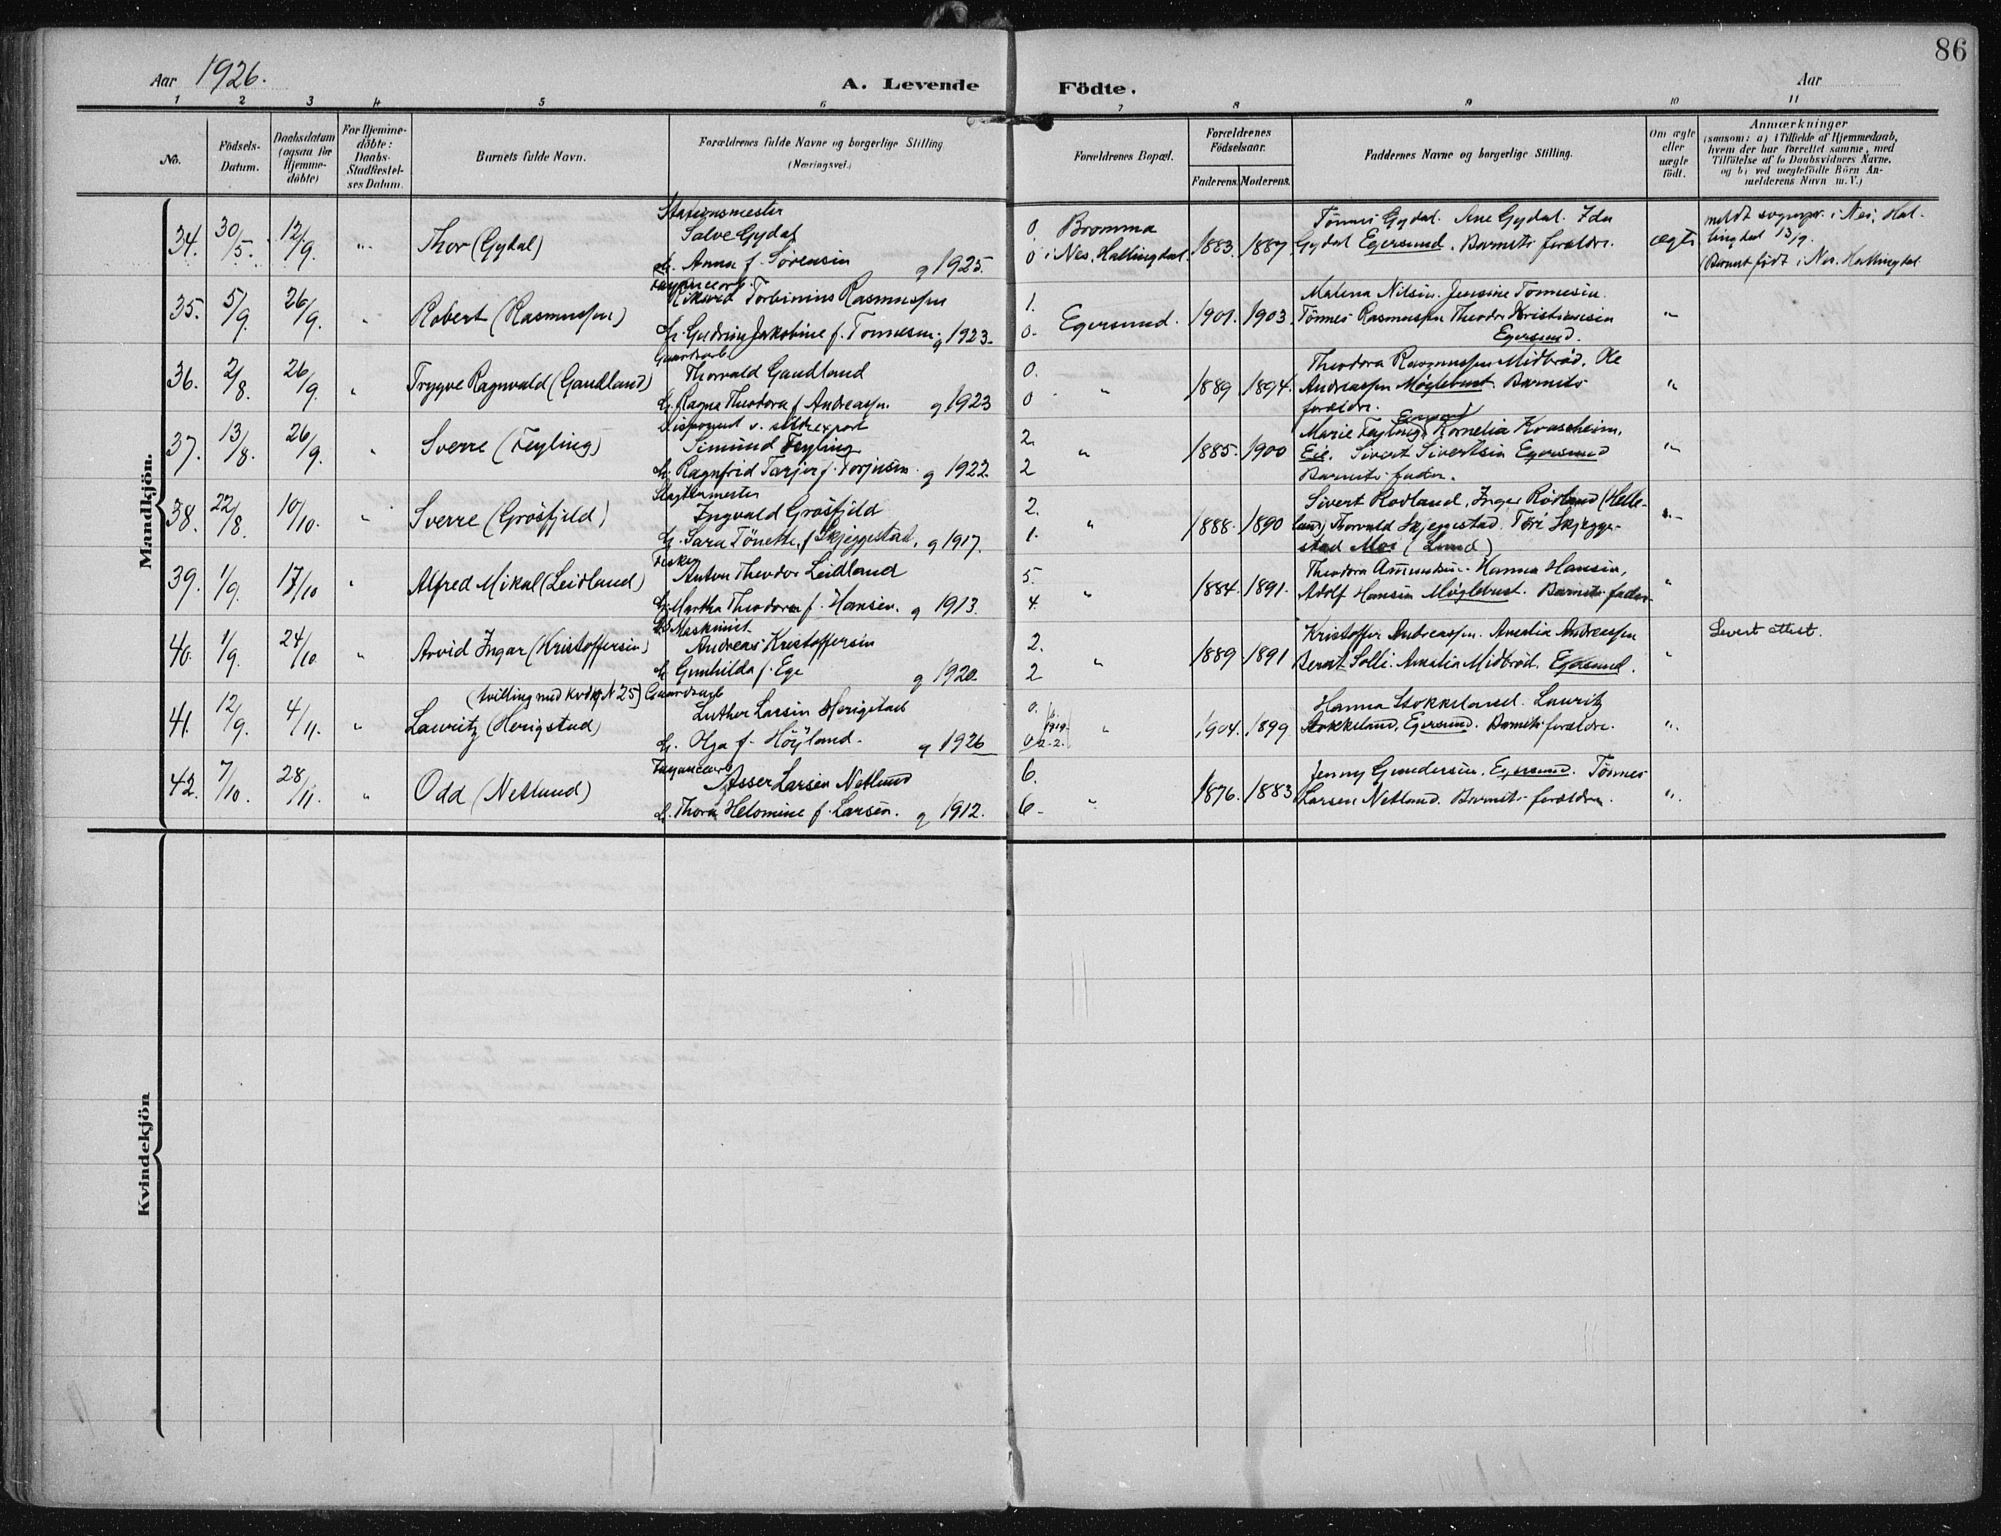 86
Aar 1926.
A. Levende Födte.
Aar
1 2 3 4 5 6 7 8 9 10 11
No.
Födsels-
Datum.
Daabsdatum
(ogsaa for
Hjemme-
döbte)
For Hjemme-
döbte:
Daabs-
Stadfæstel-
ses Datum.
Barnets fulde Navn.
Forældrenes fulde Navne og borgerlige Stilling
(Næringsvei.)
Forældrenes Bopæl.
Forældrenes
Födselsaar.
Faderens. Moderens.
Faddernes Navne og borgerlige Stilling.
Om ægte
eller
uægte
födt.
Anmærkninger
(saasom: a) i Tilfælde af Hjemmedaab,
hvem der har forrettet samme, med
Tilföielse af to Daabsvidners Navne,
og b) ved uægtefödte Börn An-
melderens Navn m. V.)
Mandkjön.
34. 30/5. 12/9. Thor (Gydal)
Stationsmester
Salve Gydal
h. Anna f. Sörensen g 1925.
0. 0 Bromma
i Nes. Hallingdal 1883. 1887
Tönnes Gydal. Ane Gydal. Ida
Gydal Egersund. Barnets forældre.
ægte
meldt sogneprs. i Nes, Hal-
lingdal 13/9.
(Barnet födt i Nes. Hallingdal
35. 5/9. 26/9. Robert (Rasmussen)
Fayancearb.
Rikard Torbinius Rasmussen
h. Gudrun Jakobine f. Tonnesen g 1923.
1. 0. Egersund. 1901. 1903.
Malena Nilsen. Jensine Tonnesen.
Tönnes Rasmussen Theodor Kristiansen
Egersund.
"
36. 2/8. 26/9. " Trygve Ragnvald (Gaudland)
Garderarb
Thorvald Gaudland
h. Ragna Theodora f Andreassn. g 1923
0. 0 " 1889 1894.
Theodora Rasmussen Midbröd. Ole
Andreassen Möglebust. Barnets
forældre.
"
37. 13/8. 26/9. Sverre (Feyling)
Disponent v. sildexport
Simund Feyling
h. Ragnfrid Tarjer f. Torjusen. g 1922.
2. 2 " 1885. 1900
Egersund
Marie Feyling, Kornelia Kvassheim,
Eie. Sivert Sivertsen Egersund
Barnets fader.
"
38. 22/8. 10/10. " Sverre (Grösfjeld)
Slagtermester
Ingvald Grösfjeld
h. Sara Tönette, f Skjeggestad, g 1917.
2. 1. " 1888. 1890
Sivert Rodland, Inger Rödland (Helle-
land) Thorvald Skjeggestad. Tori Skjegge-
stad Moi (Lund)
"
39. 1/9. 17/10 " Alfred Mikal (Leidland)
Fisker
Anton Theodor Leidland
h. Martha Theodora f. Hansen. g 1913.
5. 4. " 1884. 1891.
Theodora Amundsen. Hanna Hansen,
Adolf Hansen Möglebust. Barnets fader
"
40. 1/9. 24/10. " Arvid Ingar (Kristoffersen)
Maskinist.
Andreas Kristoffersen
h Gunhilda f. Ege g 1920.
2. 2 " 1889 1891
Kristoffer Andreassen. Amalia Andreassen
Berat Solli. Amalia Midbröd. Egersund.
"
Levert attest.
41. 12/9. 4/11. " (tvilling med Kvdkj N 25)
Lauritz (Herigstad)
Guardsarb
Luther Larsen Herigstad
h. Olga f. Höyland. g 1926
0. 0 1919- 2-2. " 1904. 1899
Hanna Stokkeland. Lauritz
Stokkeland, Egersund. Barnets forældre.
"
42. 7/10. 28/11. " Odd (Netland)
Fayancearb
Asser Larsen Netland
h. Thora Helomine f. Larsen. g 1912.
6. 6- " 1876. 1883
Jenny Gundersen, Egersund. Tönnes
Larsen Netland. Barnets forældre.
"
Kvindekjön